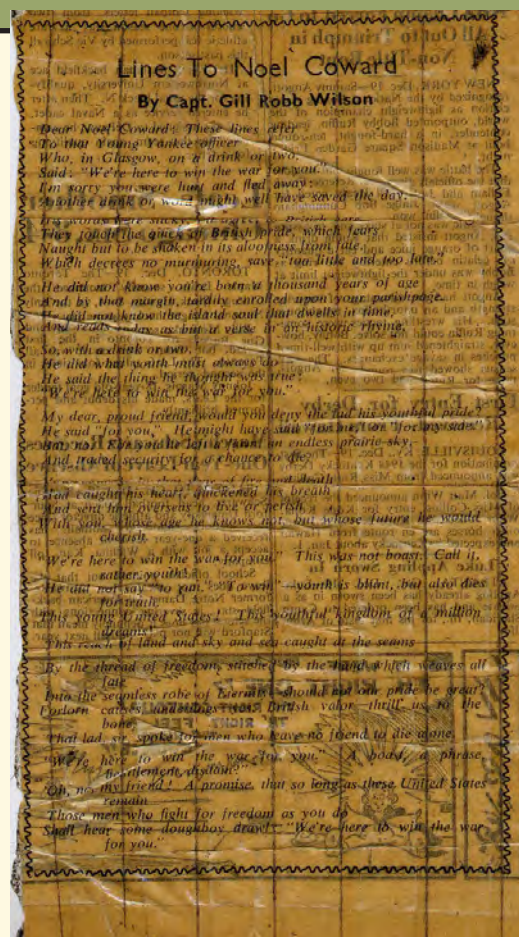 Lines To Noel Coward
By Capt. Gill Robb Wilson
Dear Noel Coward: These lines refer
To that Young Yankee officer
Who, in Glasgow, on a drink or two,
Said: "We're here to win the war for you."
I'm sorry you were hurt and fled away;
Another drink or word might well have saved the day;
words
They touch the quick of British pride, which fears
Naught but to be shaken in its aloofness from fate,
Which decrees no murmuring, save "too little and too late."
He did not know you're born a thousand years of age
And by that margin, tardily enrolled upon your parish page.
He did not know the island soul that dwells in time,
And reads a day as but a verse in an historic rhyme,
So, with a drink or two,
He did what youth must always do—
He said the thing he thought was true:
"We're here to win the war for you."
My dear, proud friend, would you deny the lad his youthful pride?
He said "for you." He might have said "for me," or "for my side."
But no! He'd left an endless prairie sky,
And traded security for a chance to die;
and death
Had caught his heart, quickened his breath
And sent him overseas to live or perish
With you, whose age he knows not, but whose future he would
cherish.
"We're here to win the war for you." This was not boast. Call it,
rather, youth!
He did not say "to run." "To win"—youth is blunt, but also dies
for truth.
This young United States! This youthful kingdom of a million
dreams!
This reach of land and sky and sea caught at the seams
By the thread of freedom, stitched by the hand which weaves all
fate
Into the seamless robe of Eternity—should not our pride be great?
Forlorn causes, British valor—thrill us to the
bone;
That lad, sir, spoke for men who leave no friend to die alone.
"We're here to win the war for you." A boast, a phrase,
Oh, no my friend! A promise, that so long as these United States
remain
Those men who fight for freedom as you do
Shall hear some doughboy drawl: "We're here to win the war
for you."